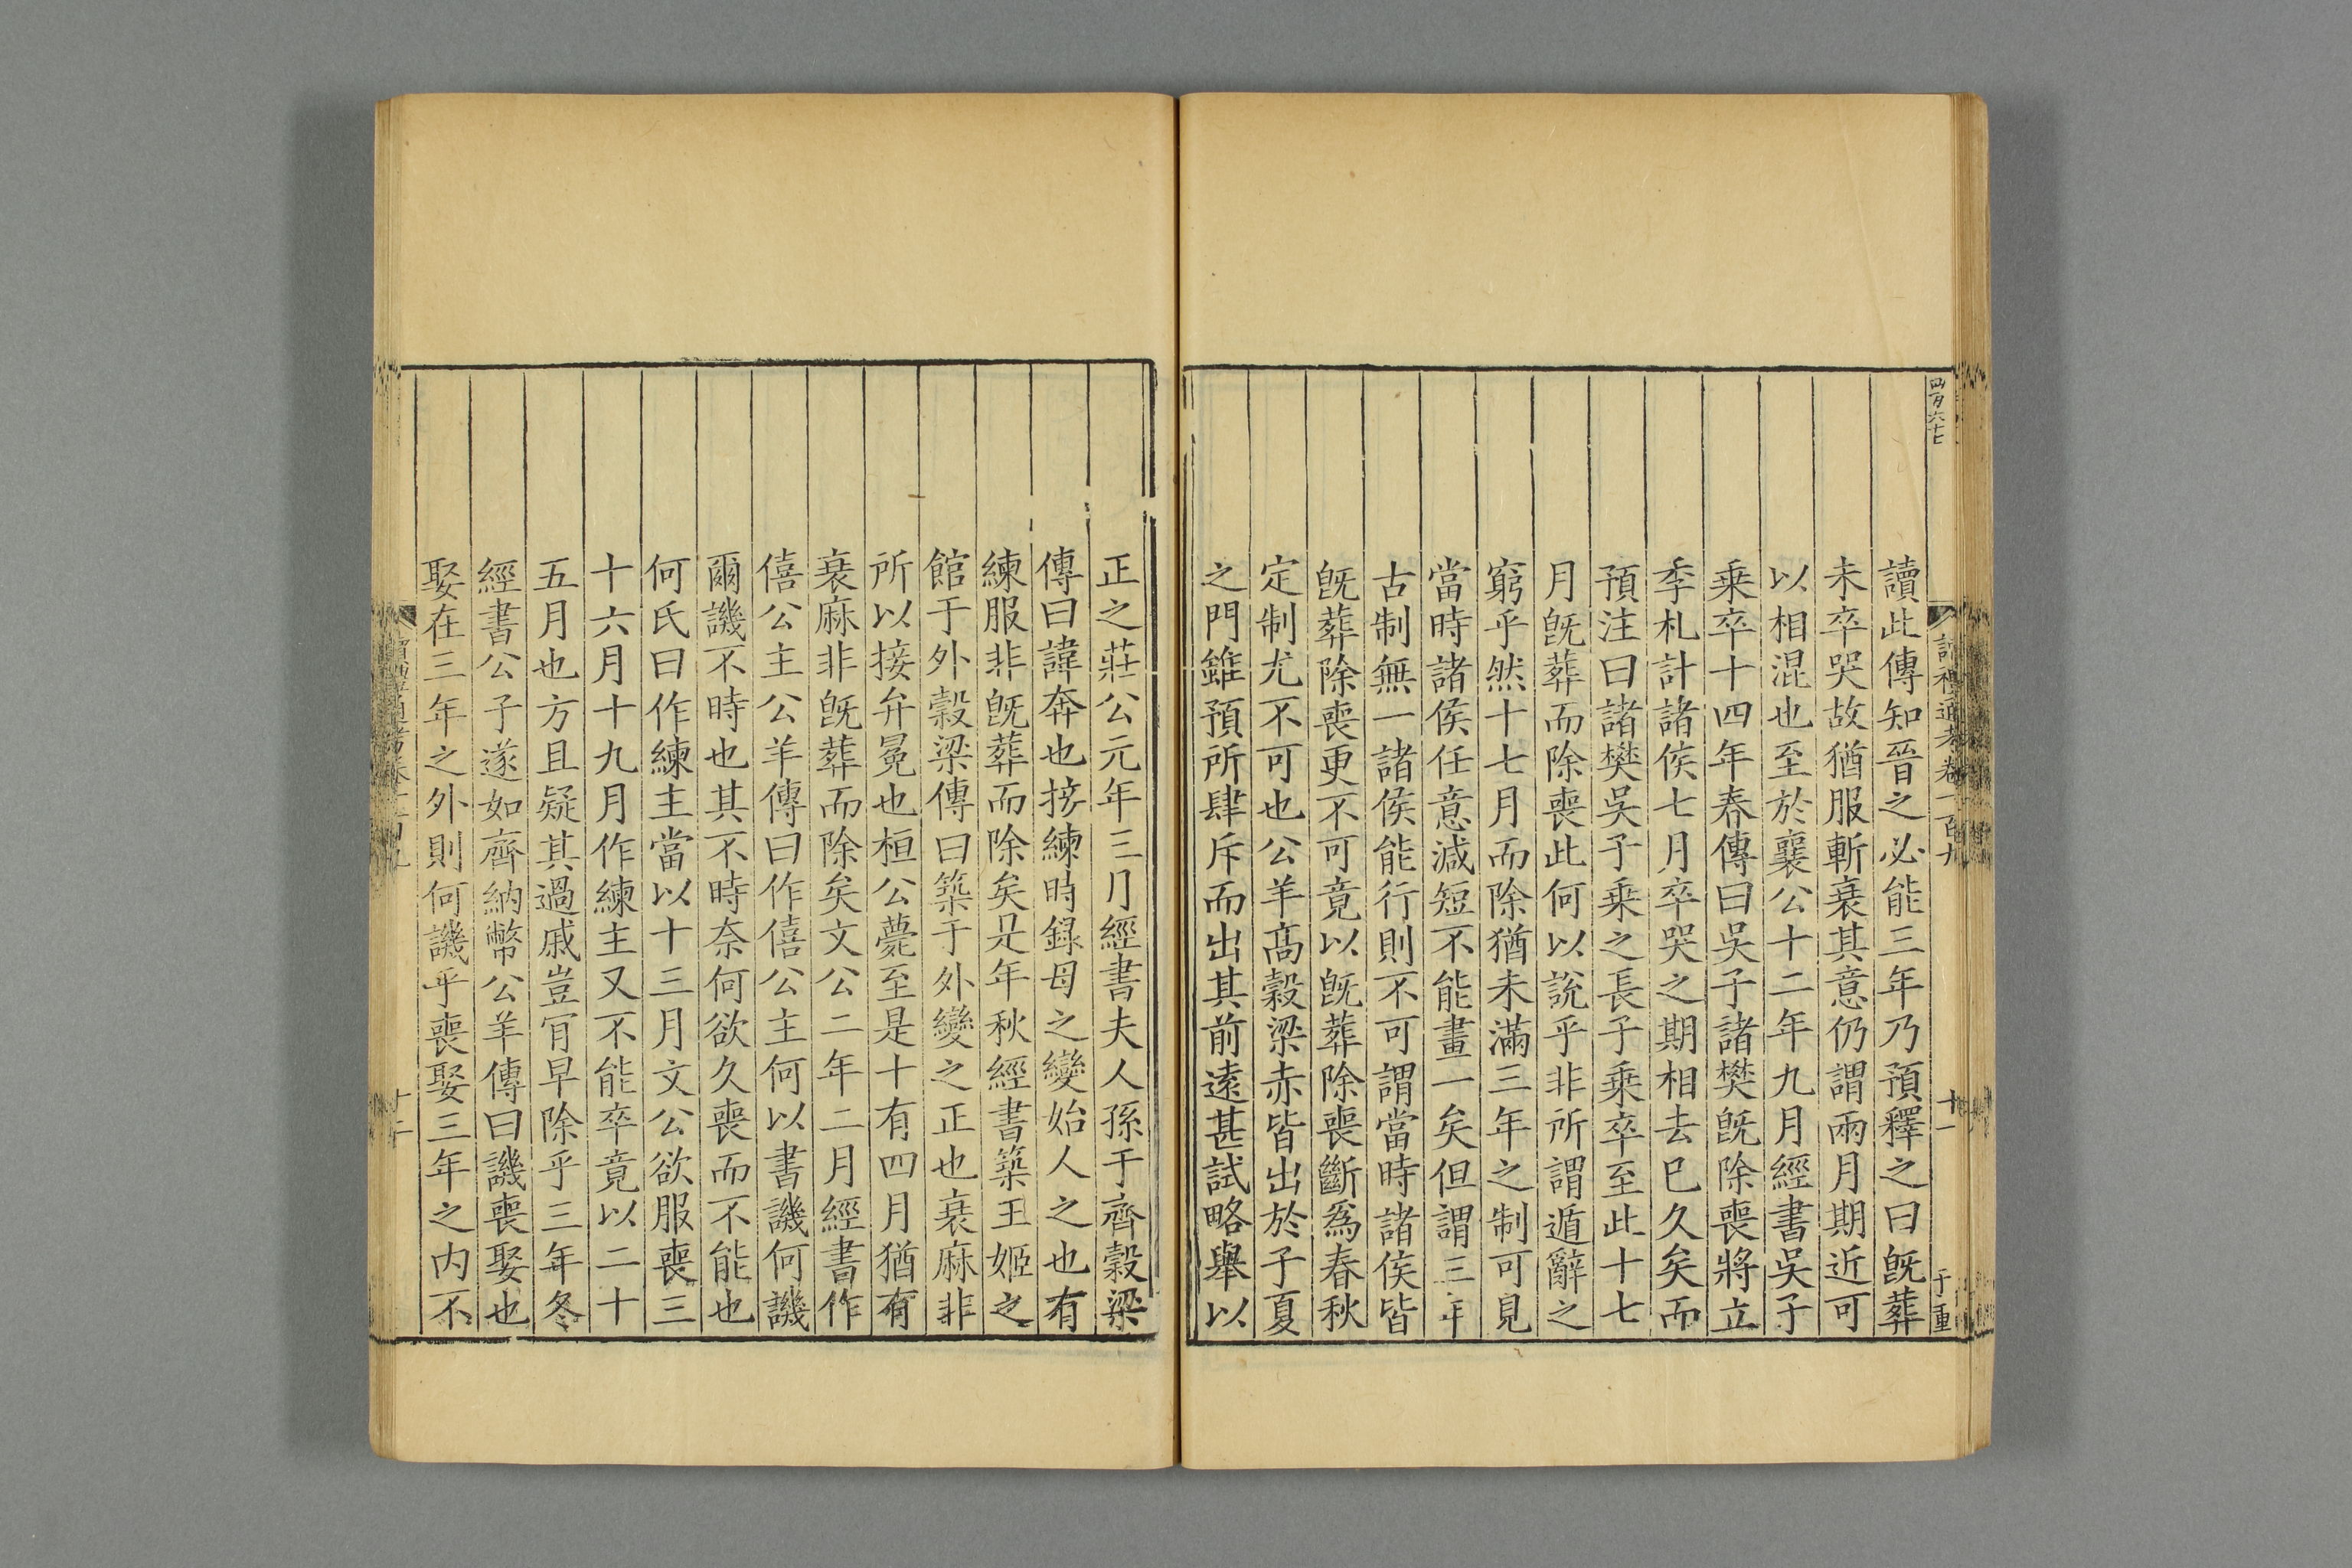 讀此傳知晉之必能三年乃預釋之曰旣葬
未卒哭故猶服斬衰其意仍謂兩月期近可
以相混也至於襄公十二年九月經書吳子
乗卒十四年春傳曰吳子諸樊旣除喪將立
季札計諸侯七月卒哭之期相去巳久矣而
預注曰諸樊吳子乗之長子乗卒至此十七
月旣葬而除喪此何以說乎非所謂遁辭之
窮乎然十七月而除猶未滿三年之制可見
當時諸侯任意減短不能畫一矣但謂三年
古制無一諸侯能行則不可謂當時諸侯皆
旣葬除喪更不可竟以旣葬除喪斷爲春秋
定制尤不可也公羊高穀梁赤皆出於子夏
之門雖預所肆斥而出其前遠甚試略舉以
正之莊公元年三月經書夫人孫于齊穀梁
傳曰諱奔也接練時録母之變始人之也有
練服非旣葬而除矣是年秋經書築王姬之
館于外穀梁傳曰築于外變之正也衰麻非
所以接弁冕也桓公薨至是十有四月猶有
衰麻非旣葬而除矣文公二年二月經書作
僖公主公羊傳曰作僖公主何以書譏何譏
爾譏不時也其不時奈何欲久喪而不能也
何氏曰作練主當以十三月文公欲服喪三
十六月十九月作練主又不能卒竟以二十
五月也方且疑其過戚豈肎早除乎三年冬
經書公子遂如齊納幣公羊傳曰譏喪娶也
娶在三年之外則何譏乎喪娶三年之内不